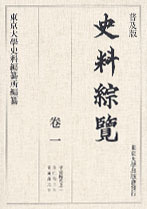 普及版
東京大學史料編纂所編纂
史料綜覽
卷一
東京大學出版會發行